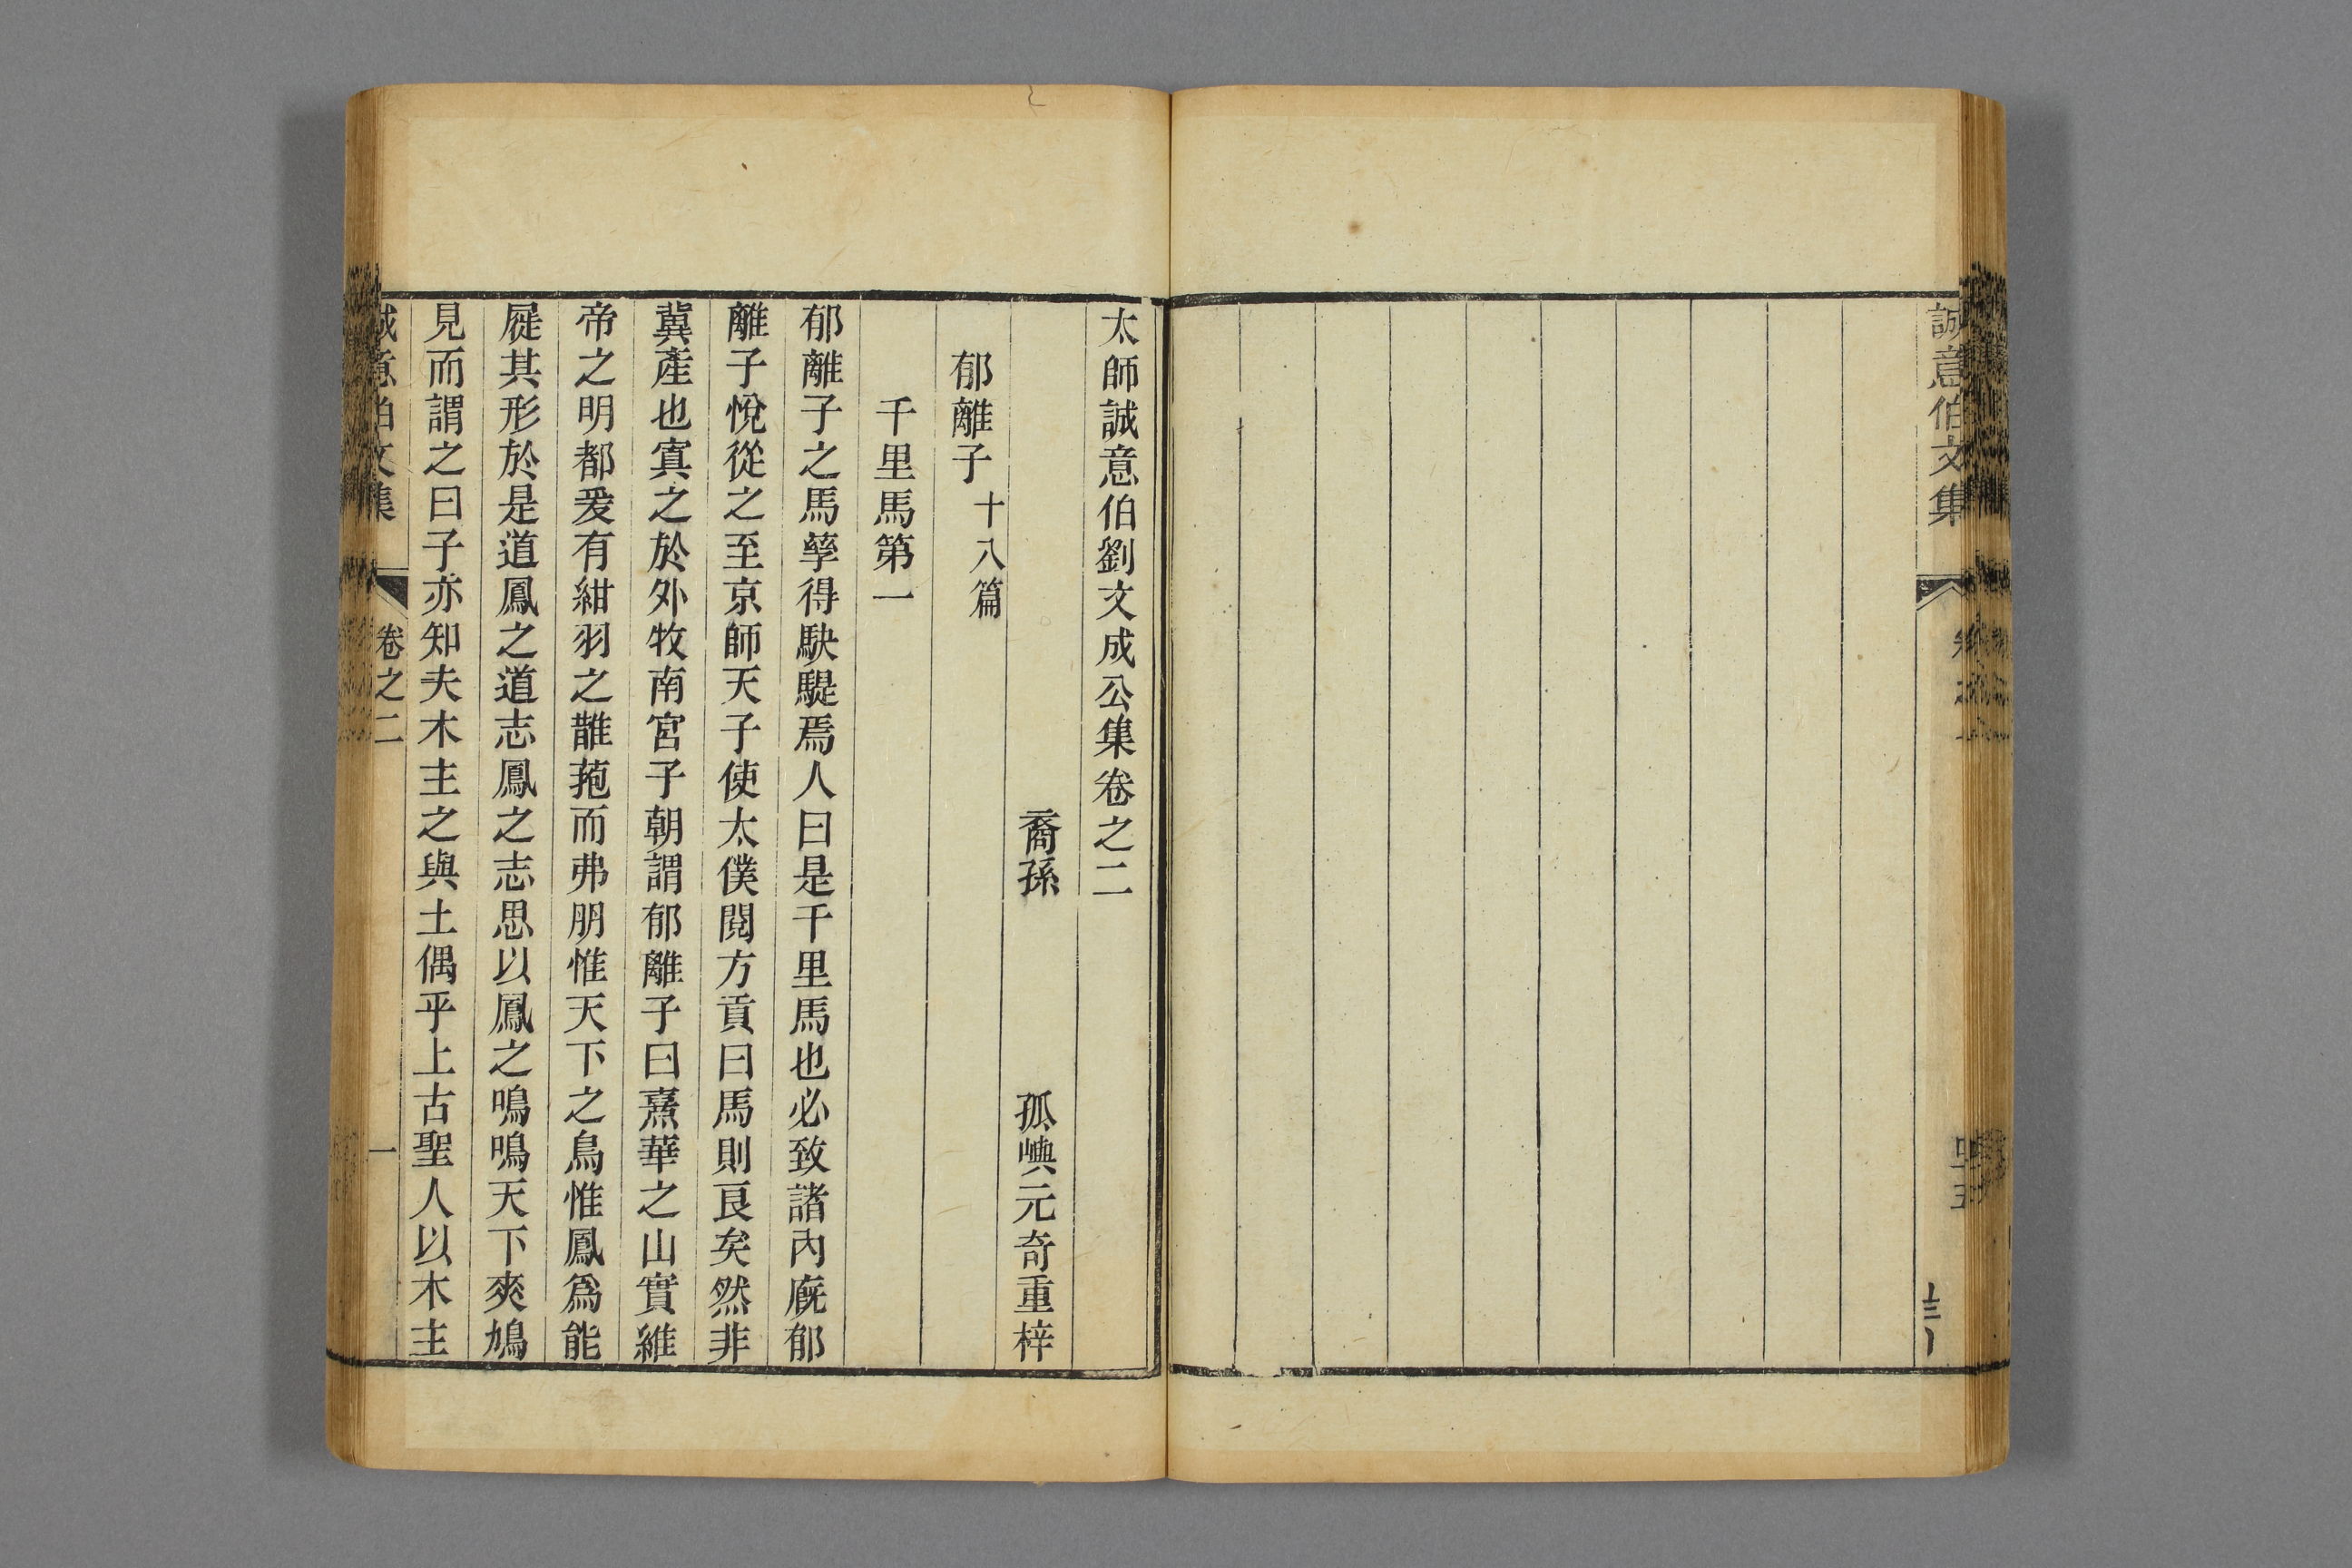 誠意伯文集
太師誠意伯劉文成公集卷之二
裔孫 孤嶼元奇重梓
郁離子 十八篇
千里馬第一
郁離子之馬孳得駃騠焉人曰是千里馬也必致諸內廐郁
離子悅從之至京師天子使太僕閱方貢曰馬則良矣然非
冀產也寘之於外牧南宮子朝謂郁離子曰熹華之山實維
帝之明都爰有紺羽之鵲菢而弗朋惟天下之鳥惟鳳爲能
屣其形於是道鳳之道志鳳之志思以鳳之鳴鳴天下奭鳩
見而謂之曰子亦知夫木主之與土偶乎上古聖人以木主
誠意伯文集 卷之二 一